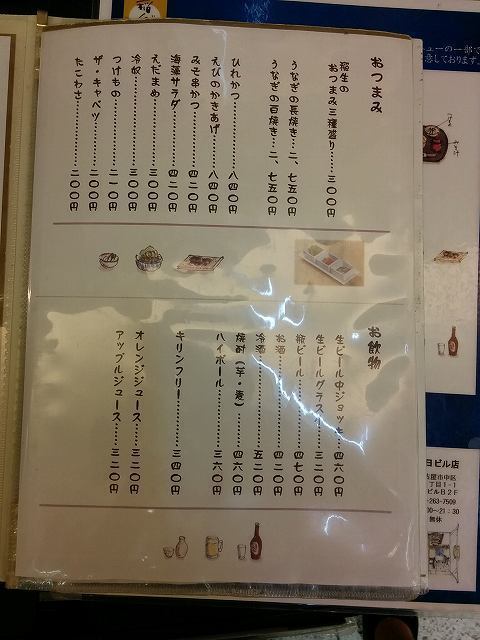 おつまみ
稲生の
おつまみ三種盛り……三〇〇円
うなぎの長焼き…二、七五〇円
うなぎの百焼き…二、七五〇円
ひれかつ……………八四〇円
えびのかきあげ……八四〇円
みそ串かつ…………四二〇円
海藻サラダ…………四二〇円
えだまめ……………三〇〇円
冷奴…………………三〇〇円
つけもの……………二一〇円
ザ・キャベツ………二〇〇円
たこわさ……………二〇〇円
お飲物
生ビール中ジョッキ…四六〇円
生ビールグラス……三二〇円
瓶ビール……………四七〇円
お酒…………………四二〇円
冷酒…………………五二〇円
焼酎(芋・麦)………四六〇円
ハイボール…………三六〇円
キリンフリー………三四〇円
オレンジジュース……三二〇円
アップルジュース……三二〇円
ューの一部で
意しております。
日ビル店
古屋市中区
丁目1-1
ビルB2F
-263-7509
:00〜21:30
無休